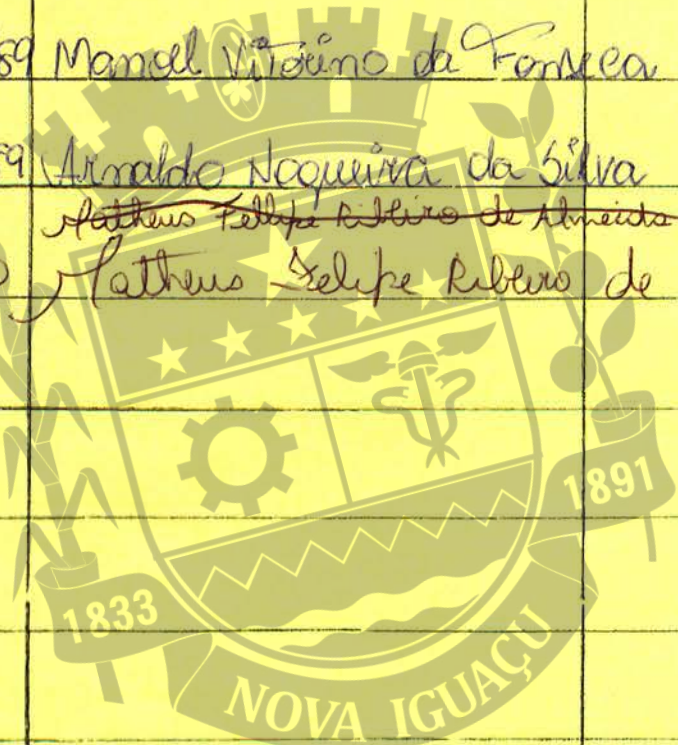 89 Manoel Vitorino da Fonseca
9 Arnaldo Nogueira da Silva
Matheus Fellipe Ribeiro de Almeida
Matheus Felipe Ribeiro de
1891
1833
NOVA IGUAÇU